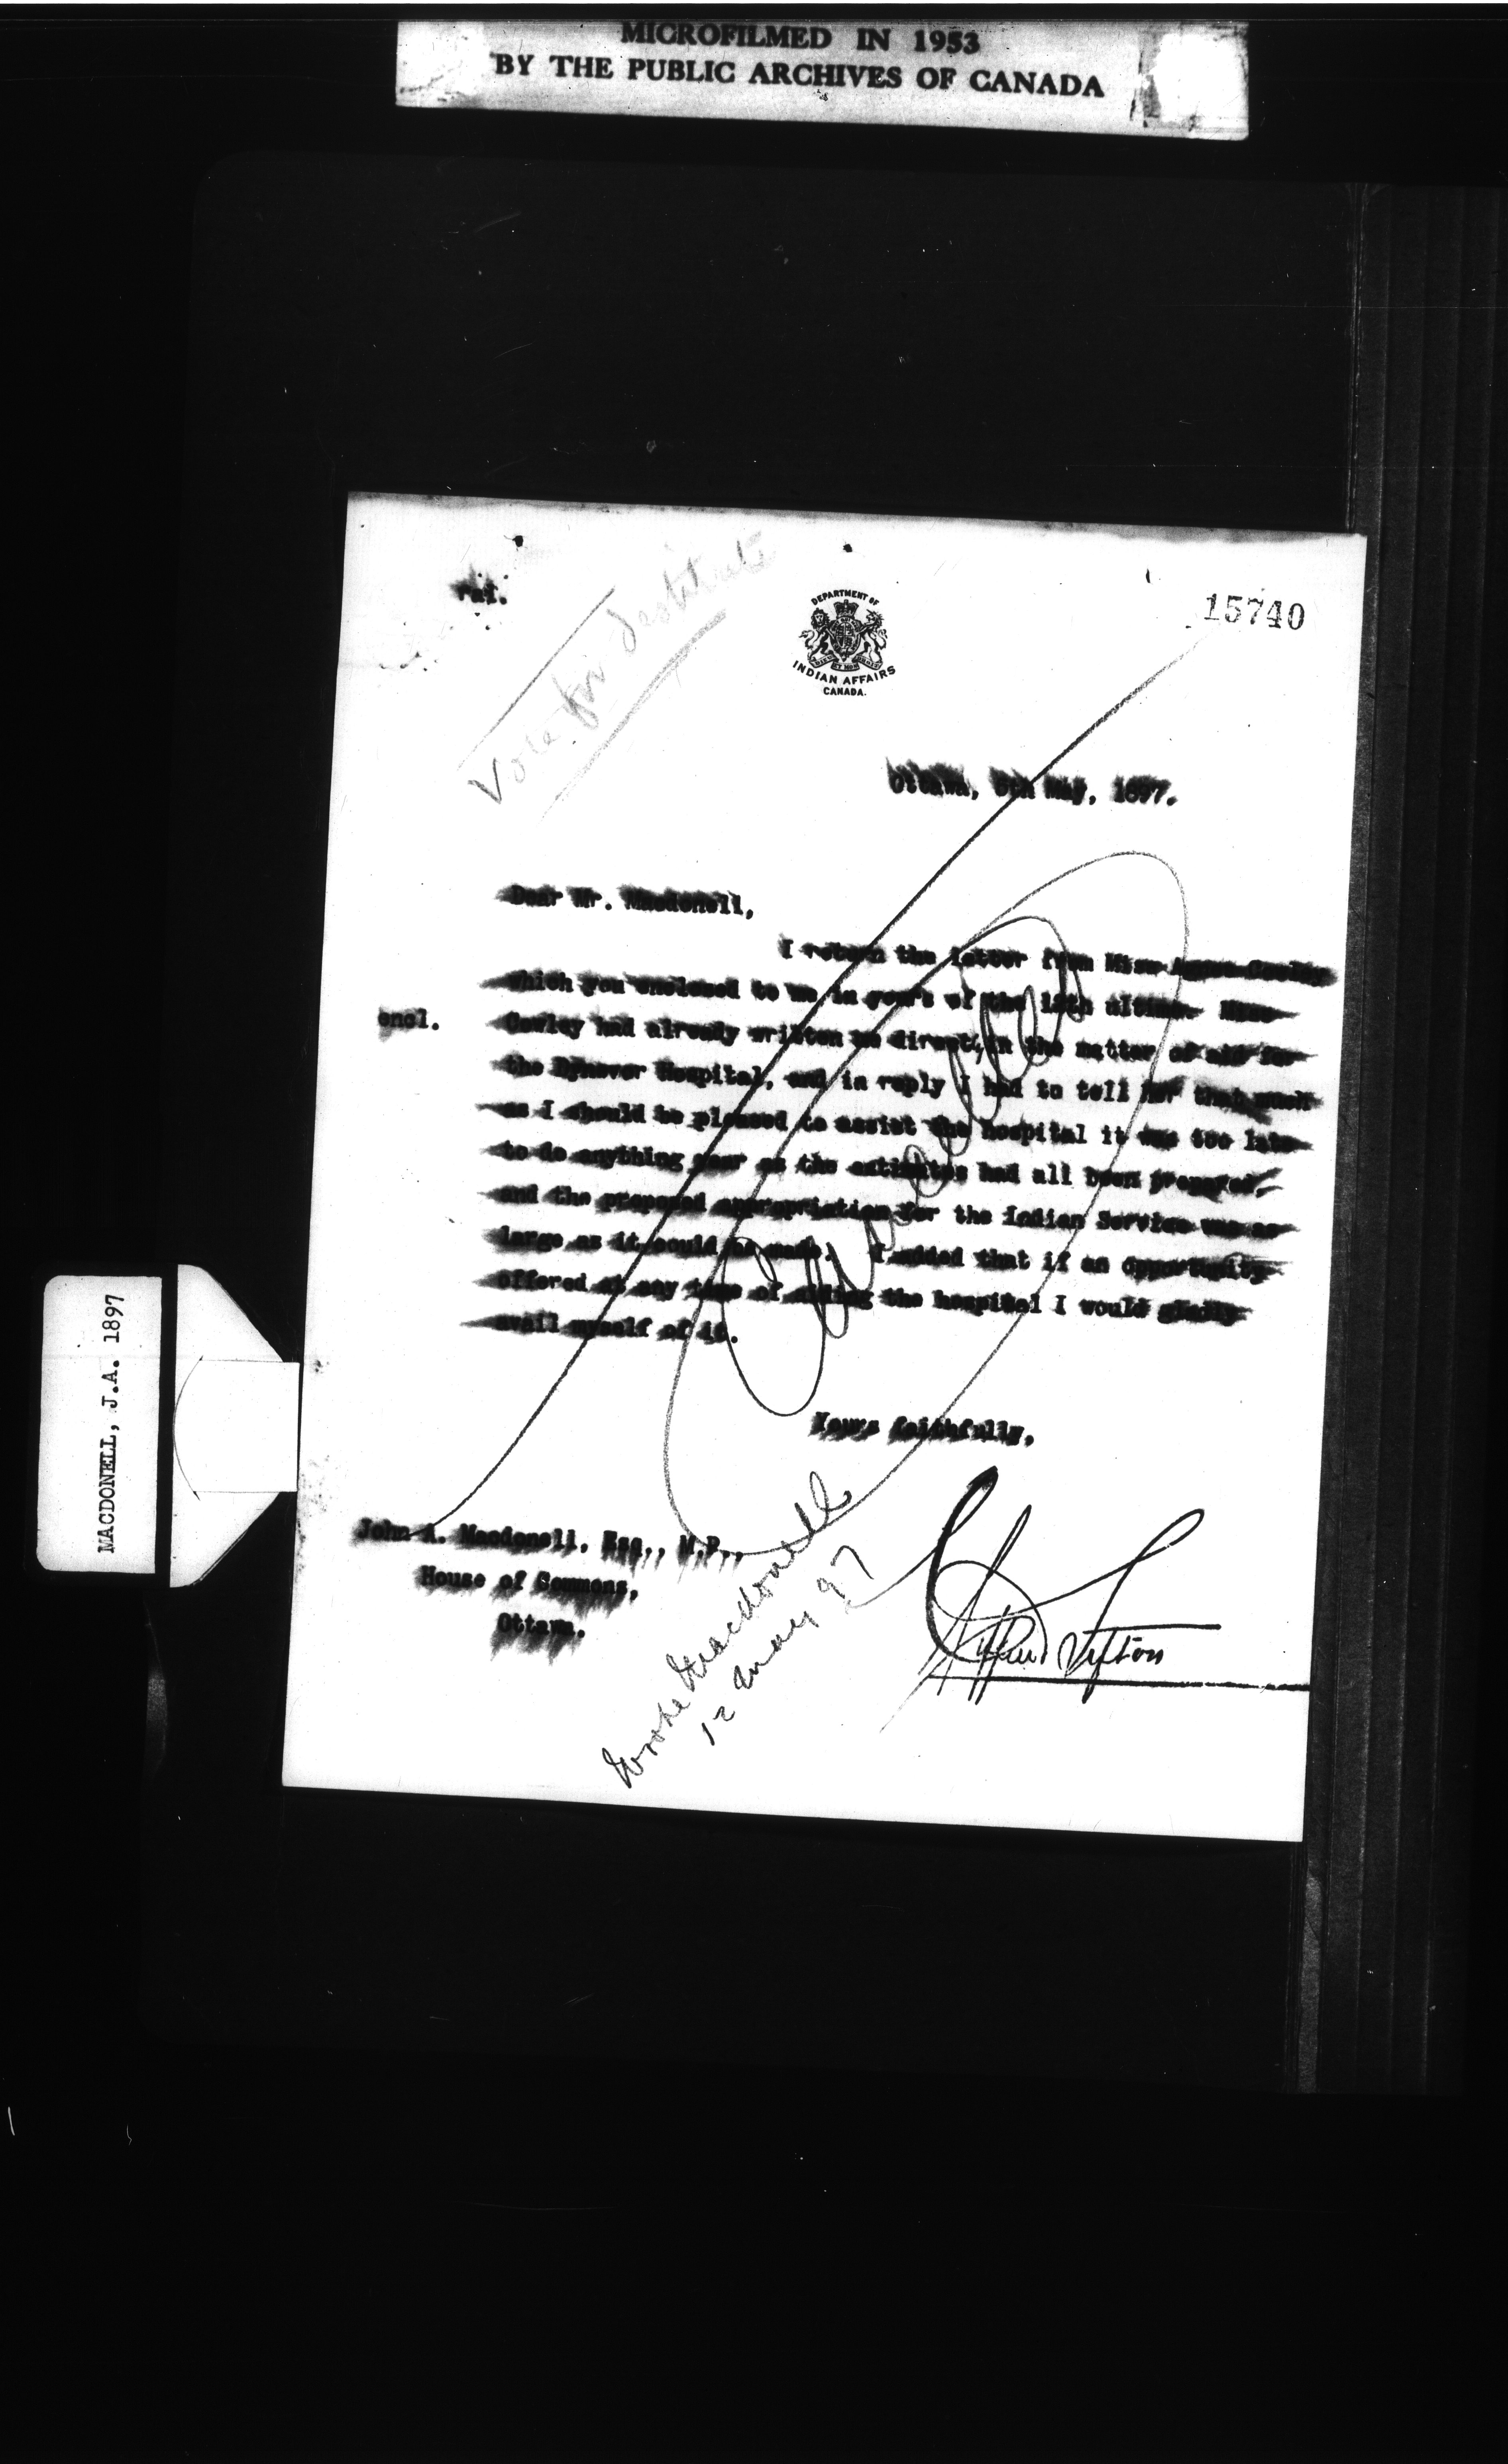 MICROFILMED IN 1953
BY THE PUBLIC ARCHIVES OF CANADA
15740
DEPARTMENT OF
INDIAN AFFAIRS
CANADA.
Vote for destitute
Ottawa, May, 1897.
Dear Mr. Macdonell,
I return the letter from Miss Cowley
which you enclosed to me in yours of the ultimo. Miss
encl.
Cowley had already written me direct, in the matter of aid for
the Dynevor Hospital, and in reply I had to tell her that much
as I should be pleased to assist the hospital it was too late
to do anything near as the estimates had all been prepared,
and the proposed appropriation for the Indian Service was as
large as it could be made. I added that if an opportunity
offered at any time of aiding the hospital I would gladly
avail myself of it.
Yours faithfully,
John A. Macdonell, Esq., M.P.,
House of Commons,
Ottawa.
Clifford Sifton
Wrote Macdonell
12 May 97
MACDONELL, J.A. 1897